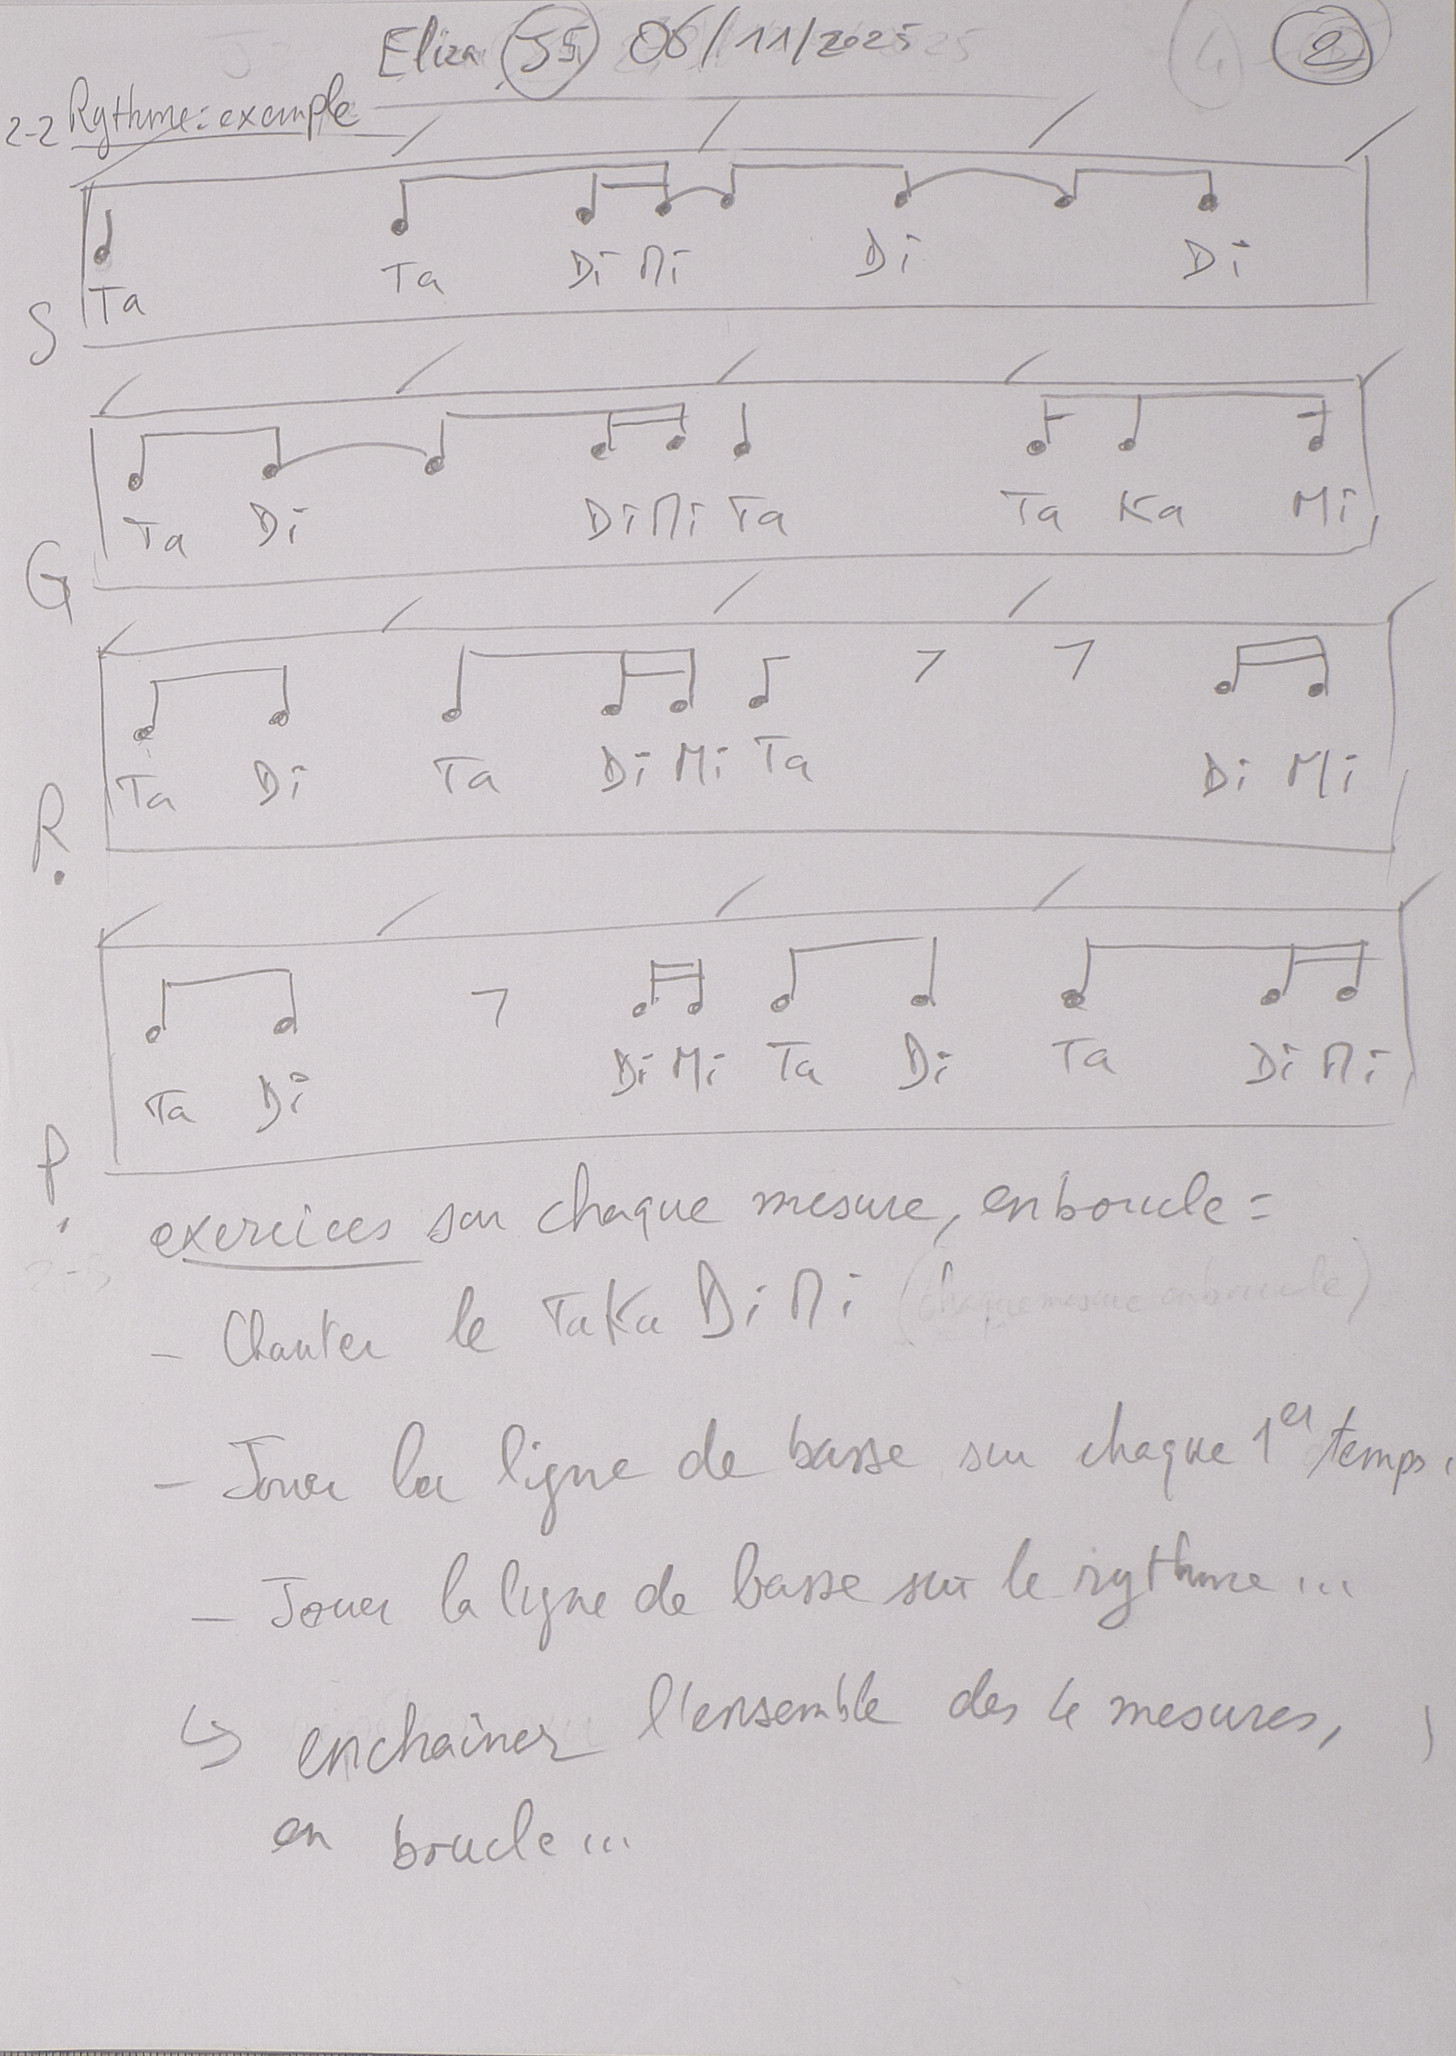 Eliza J5 06/11/2025 2
2-2 Rythme: example
Ta Ta Di Mi Di Di
S
Ta Di Di Mi Ta Ta Ka Mi
G
Ta Di Ta Di Mi Ta Di Mi
R.
Ta Di Di Mi Ta Di Ta Di Mi
P.
exercices sur chaque mesure, en boucle =
- Chanter le TaKa Di Mi (chaque mesure en boucle)
- Jouer la ligne de basse sur chaque 1er temps.
- Jouer la ligne de basse sur le rythme...
↳ enchaîner l'ensemble des 4 mesures,
en boucle...